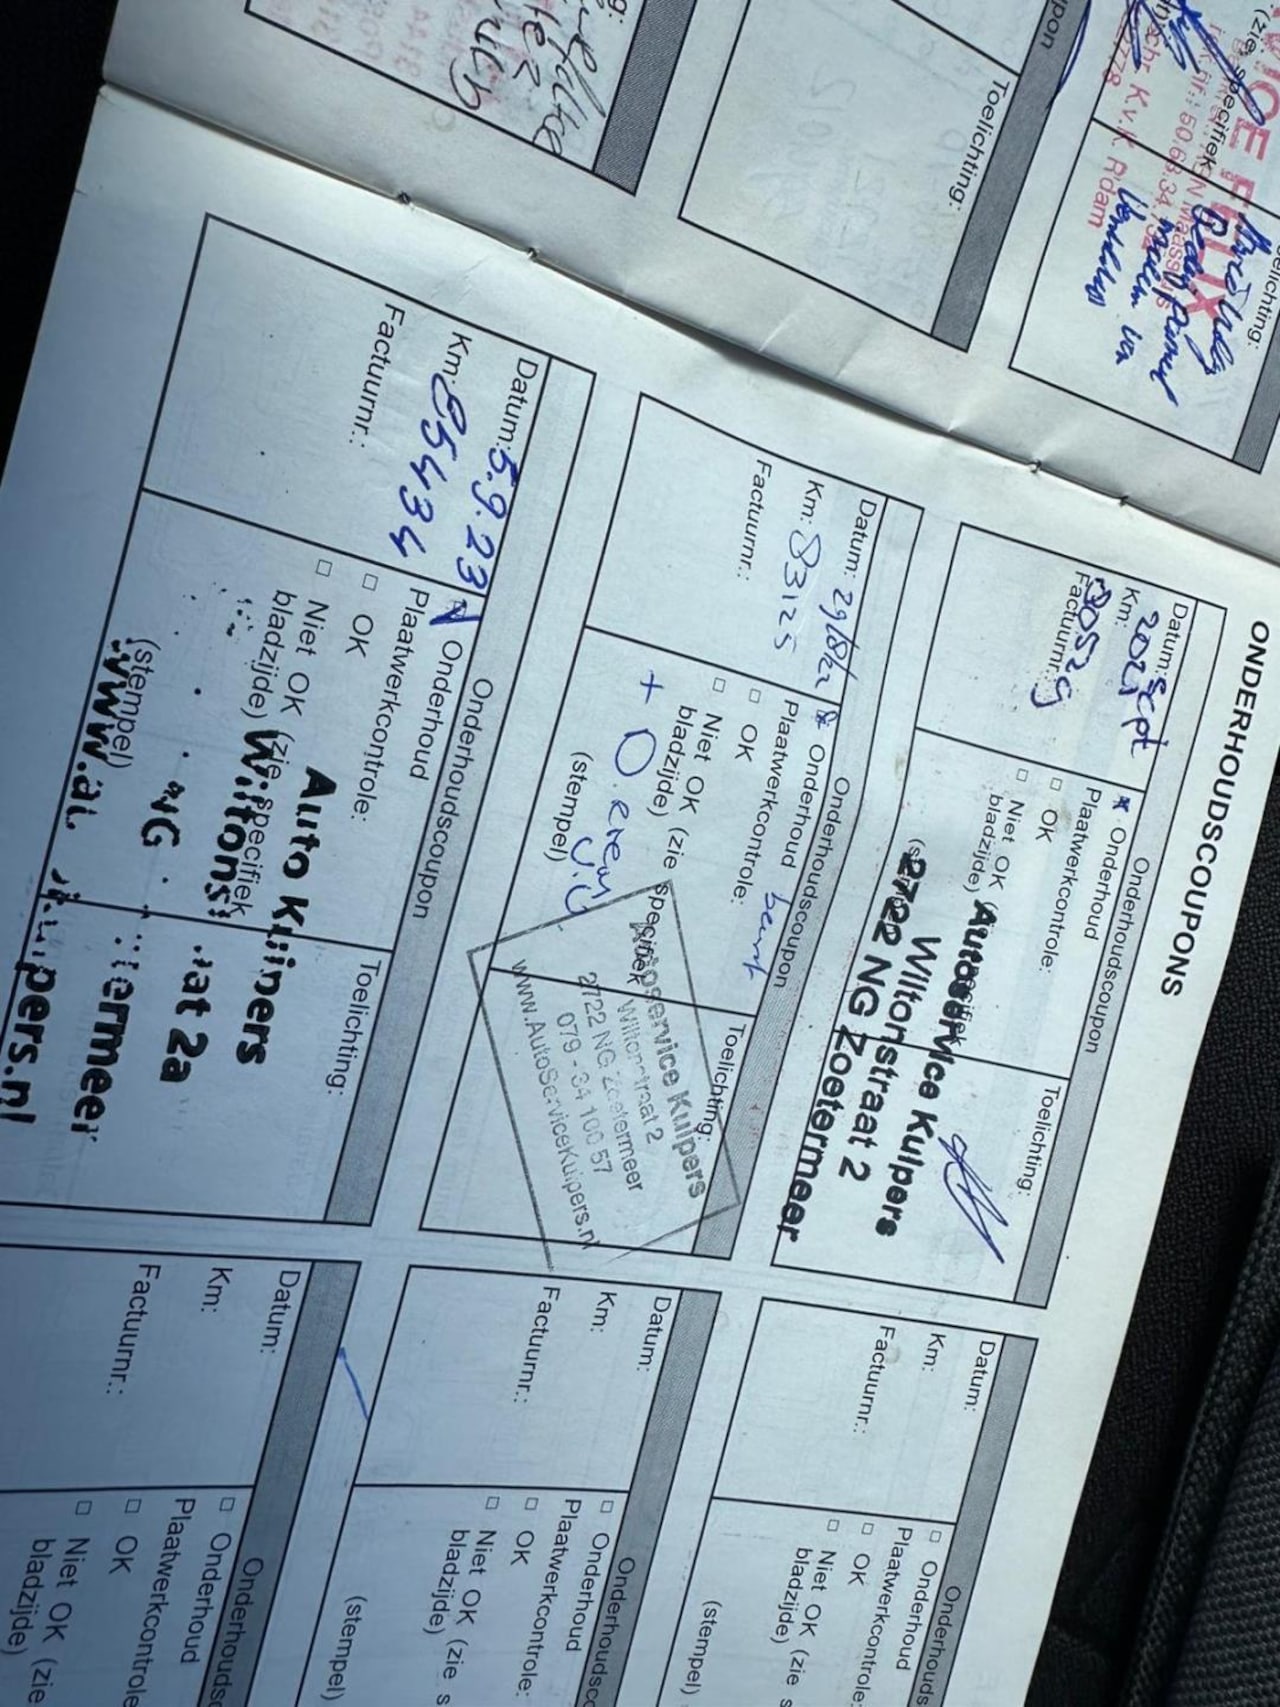 ONDERHOUDSCOUPONS
Onderhoudscoupon
Datum: sept
2021
Km:
80529
Factuurnr.:
Onderhoud
Plaatwerkcontrole:
OK
Niet OK
bladzijde)
Toelichting:
Autoservice Kuipers
Wiltonstraat 2
2722 NG Zoetermeer
Onderhoudscoupon
Datum: 29/8/22
Km: 83125
Factuurnr.:
Onderhoud beurt
Plaatwerkcontrole:
OK
Niet OK (zie specifiek
bladzijde)
+ O.
(stempel)
Toelichting:
Autoservice Kuipers
Wiltonstraat 2
2722 NG Zoetermeer
079 - 34 100 57
www.AutoServiceKuipers.nl
Onderhoudscoupon
Datum: 5.9.23
Km: 85434
Factuurnr.:
Onderhoud
Plaatwerkcontrole:
OK
Niet OK (zie specifiek
bladzijde)
(stempel)
Toelichting:
Auto Kuipers
Wiltons at 2a
NG ermeer
www.au uipers.nl
Onderhouds
Datum:
Km:
Factuurnr.:
Onderhoud
Plaatwerkcontrole:
OK
Niet OK (zie s
bladzijde)
(stempel)
Onderhoudsco
Datum:
Km:
Factuurnr.:
Onderhoud
Plaatwerkcontrole:
OK
Niet OK (zie s
bladzijde)
(stempel)
Onderhoudsc
Datum:
Km:
Factuurnr.:
Onderhoud
Plaatwerkcontrole
OK
Niet OK (zie
bladzijde)
Toelichting:
(zie specifiek
K.v.K. Rdam
Toelichting: